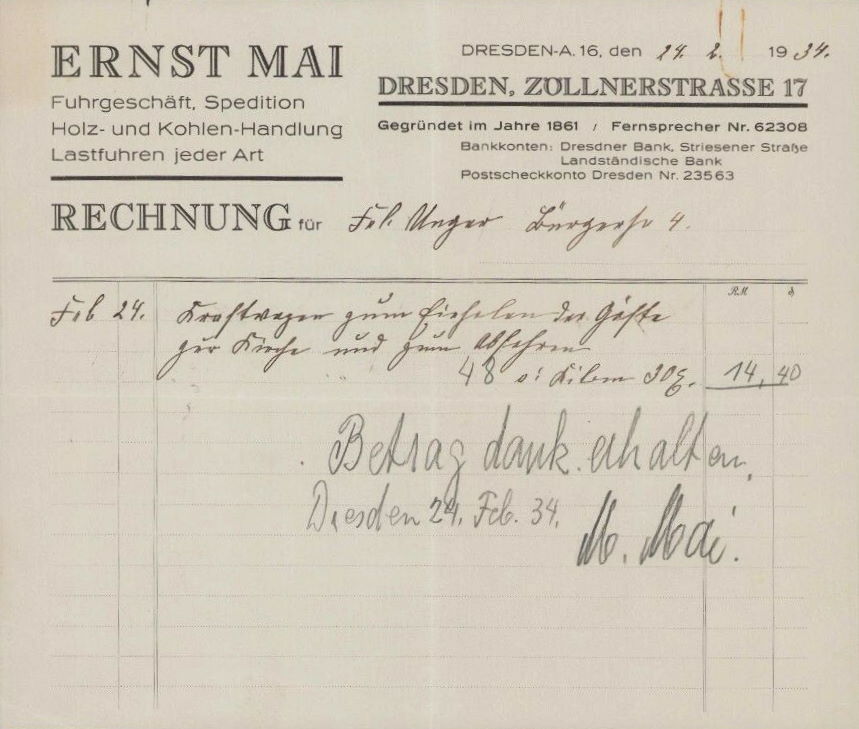 ERNST MAI
Fuhrgeschäft, Spedition
Holz- und Kohlen-Handlung
Lastfuhren jeder Art
DRESDEN-A. 16, den 24. 2. 1934.
DRESDEN, ZÖLLNERSTRASSE 17
Gegründet im Jahre 1861 / Fernsprecher Nr. 62308
Bankkonten: Dresdner Bank, Striesener Straße
Landständische Bank
Postscheckkonto Dresden Nr. 23563
RECHNUNG für Frl. Unger Bürgerstr 4.
RM ₰
Feb 24. Kraftwagen zum Einholen der Gäste
zur Kirche und zum Abfahren
48 Kilom 30 14,40
Betrag dank. erhalten.
Dresden 24. Feb. 34.
M. Mai.